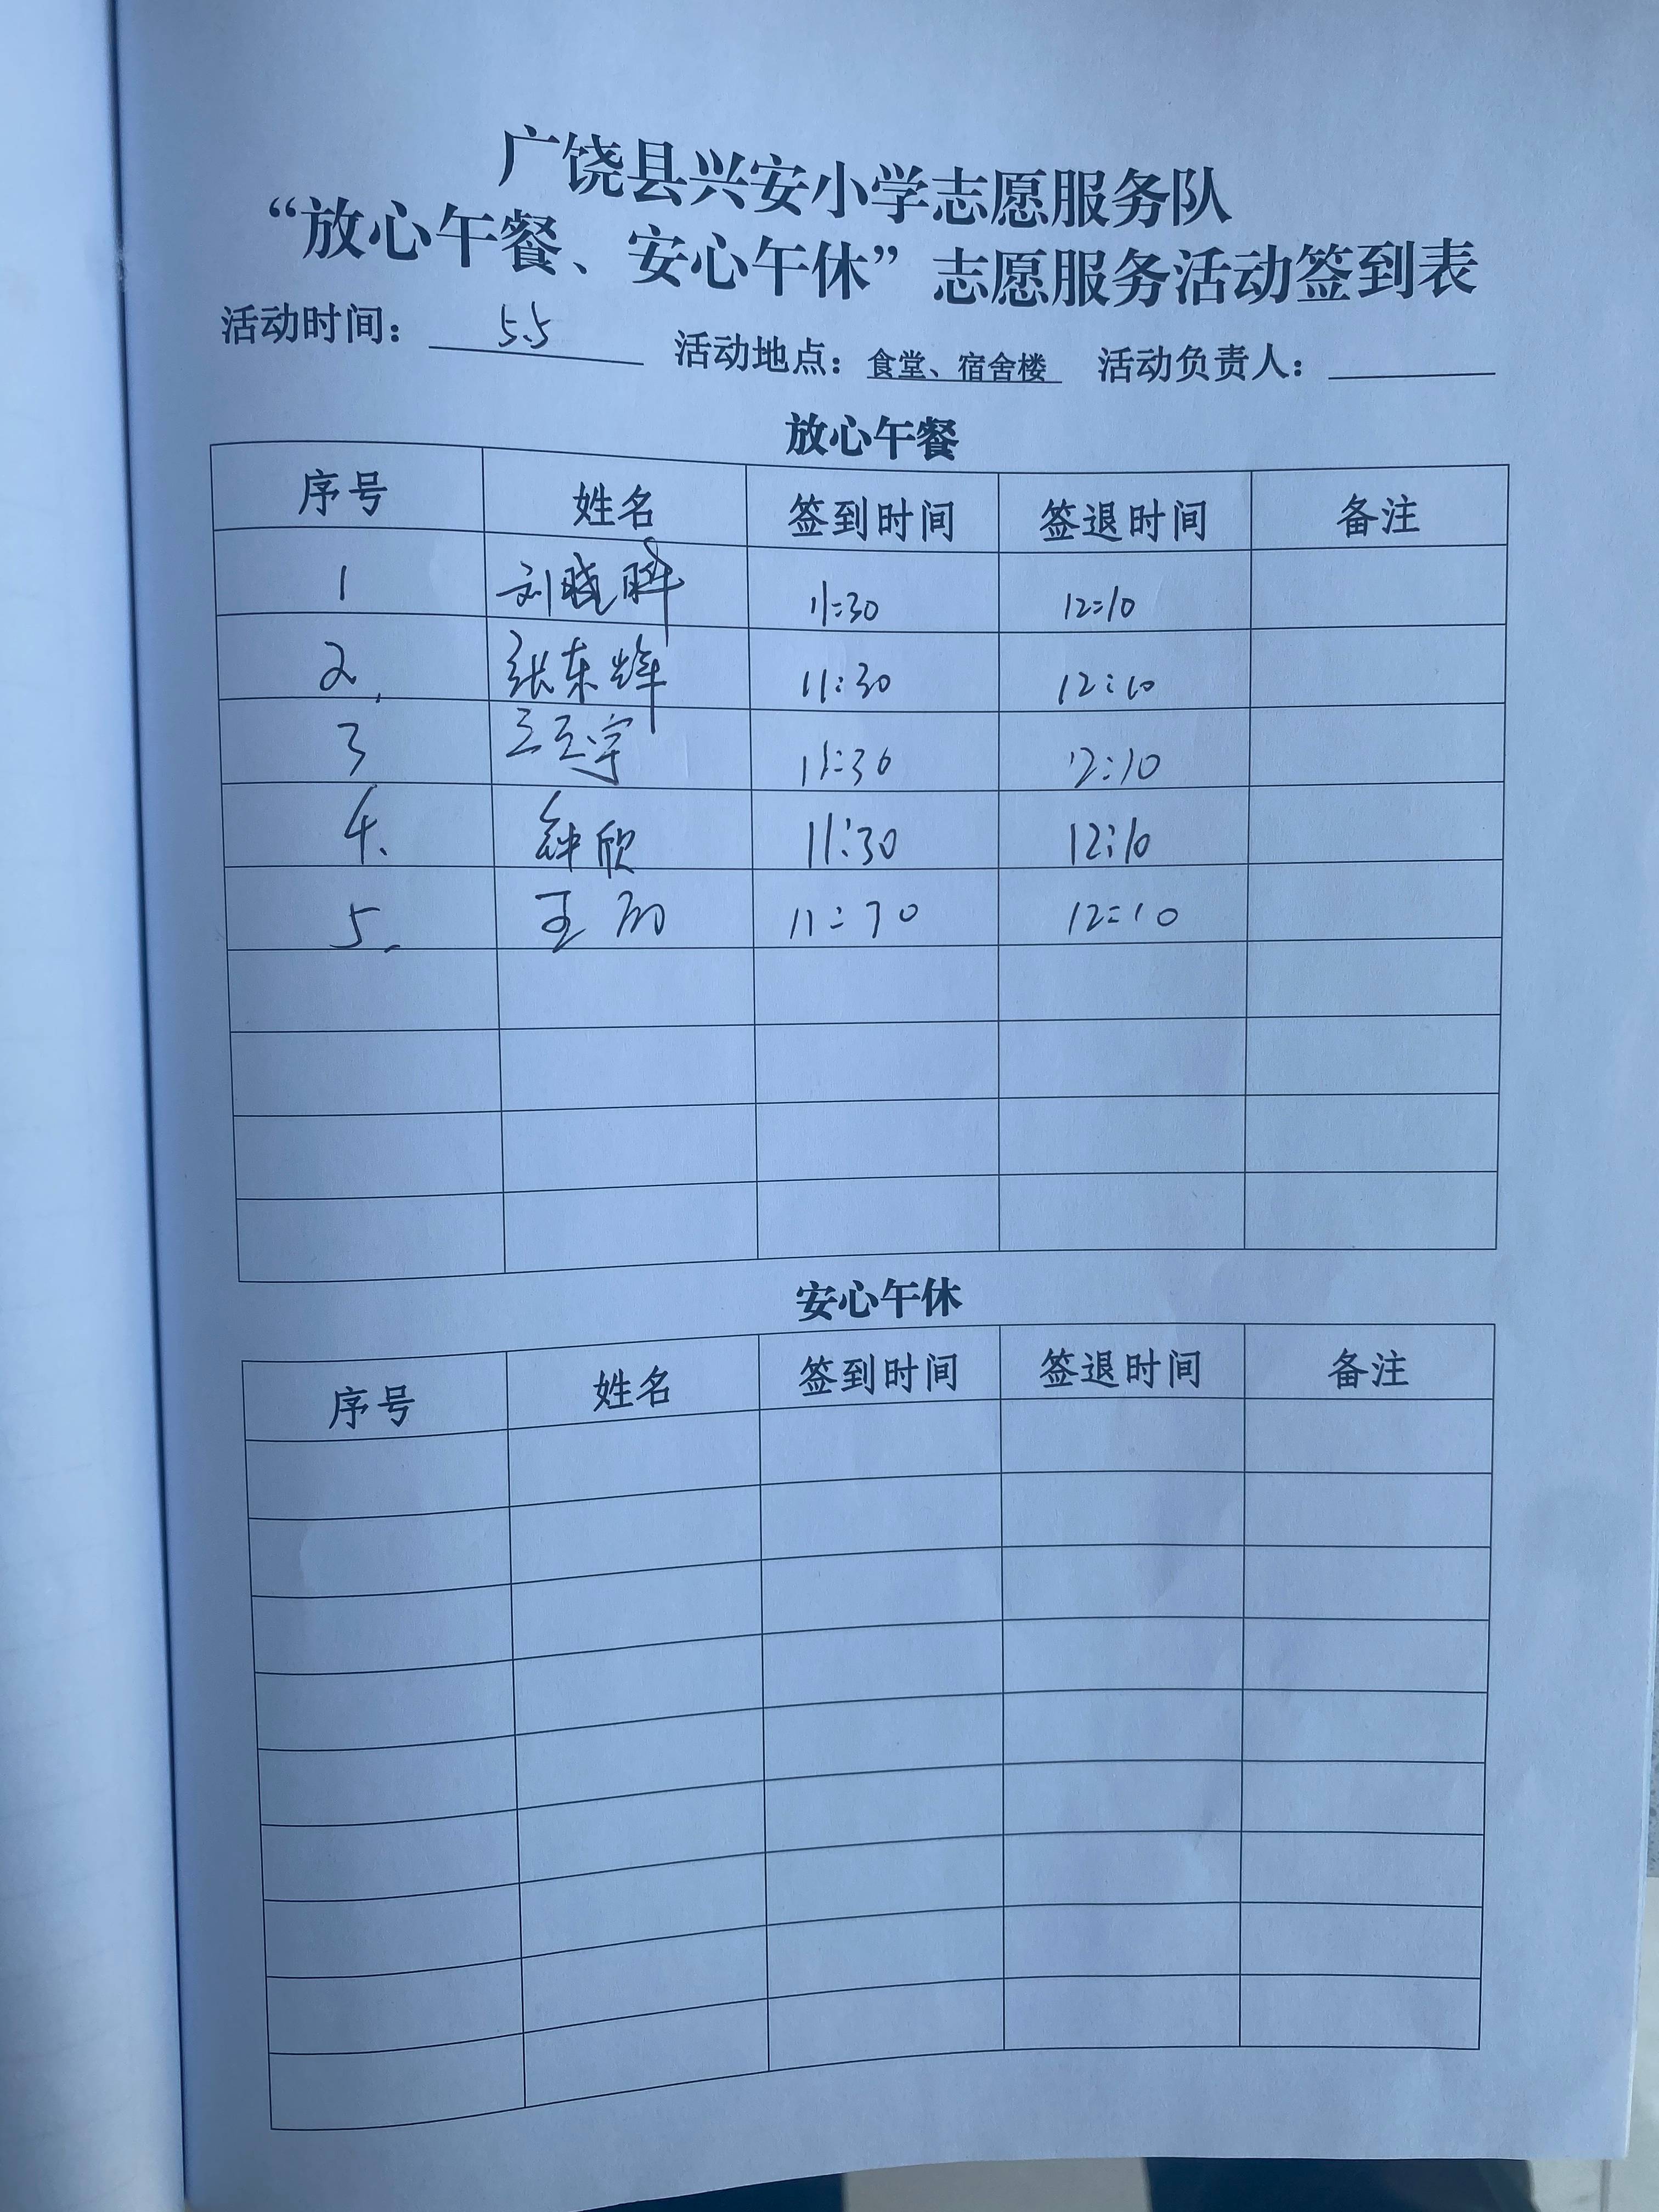 广饶县兴安小学志愿服务队
“放心午餐、安心午休”志愿服务活动签到表
活动时间： 5.5 活动地点：食堂、宿舍楼 活动负责人：
放心午餐
序号 姓名 签到时间 签退时间 备注
1 刘晓晖 11:30 12:10
2. 张东辉 11:30 12:10
3 11:30 12:10
4. 钟欣 11:30 12:10
5. 王 11:30 12:10
安心午休
序号 姓名 签到时间 签退时间 备注